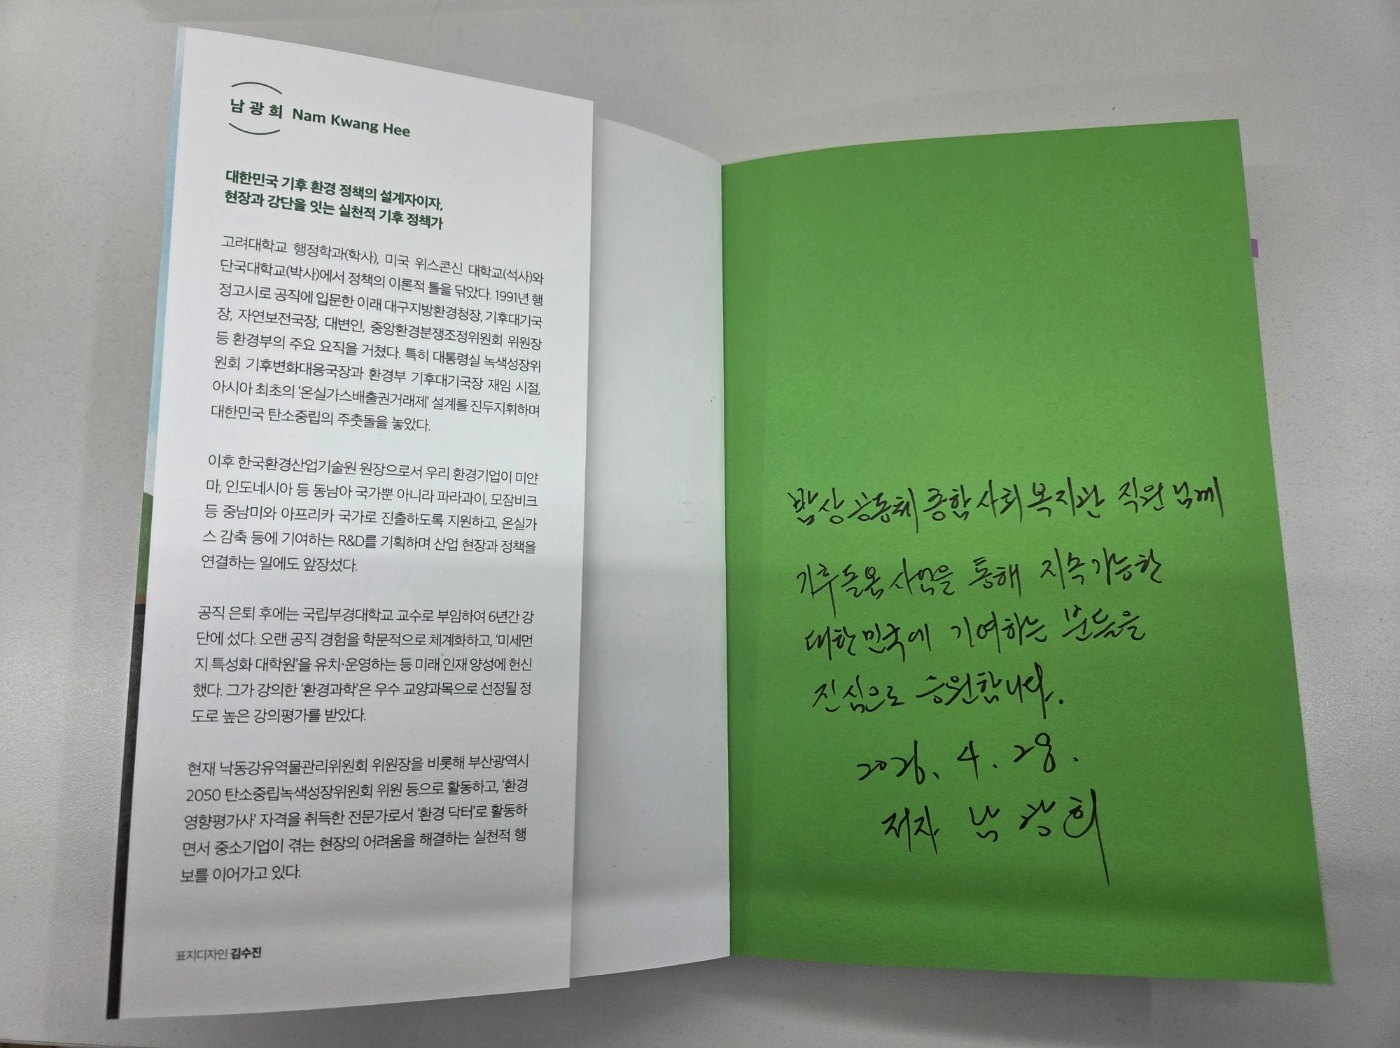 남광희 Nam Kwang Hee
대한민국 기후 환경 정책의 설계자이자,
현장과 강단을 잇는 실천적 기후 정책가
고려대학교 행정학과(학사), 미국 위스콘신 대학교(석사)와
단국대학교(박사)에서 정책의 이론적 틀을 닦았다. 1991년 행
정고시로 공직에 입문한 이래 대구지방환경청장, 기후대기국
장, 자연보전국장, 대변인, 중앙환경분쟁조정위원회 위원장
등 환경부의 주요 요직을 거쳤다. 특히 대통령실 녹색성장위
원회 기후변화대응국장과 환경부 기후대기국장 재임 시절,
아시아 최초의 '온실가스배출권거래제' 설계를 진두지휘하며
대한민국 탄소중립의 주춧돌을 놓았다.
이후 한국환경산업기술원 원장으로서 우리 환경기업이 미얀
마, 인도네시아 등 동남아 국가뿐 아니라 파라과이, 모잠비크
등 중남미와 아프리카 국가로 진출하도록 지원하고, 온실가
스 감축 등에 기여하는 R&D를 기획하며 산업 현장과 정책을
연결하는 일에도 앞장섰다.
공직 은퇴 후에는 국립부경대학교 교수로 부임하여 6년간 강
단에 섰다. 오랜 공직 경험을 학문적으로 체계화하고, '미세먼
지 특성화 대학원'을 유치·운영하는 등 미래 인재 양성에 헌신
했다. 그가 강의한 '환경과학'은 우수 교양과목으로 선정될 정
도로 높은 강의평가를 받았다.
현재 낙동강유역물관리위원회 위원장을 비롯해 부산광역시
2050 탄소중립녹색성장위원회 위원 등으로 활동하고, '환경
영향평가사' 자격을 취득한 전문가로서 '환경 닥터'로 활동하
면서 중소기업이 겪는 현장의 어려움을 해결하는 실천적 행
보를 이어가고 있다.
표지디자인 김수진
밥상공동체종합사회복지관 직원님께
기후돌봄사업을 통해 지속가능한
대한민국에 기여하는 분들을
진심으로 응원합니다.
2026. 4. 28.
저자 남광희